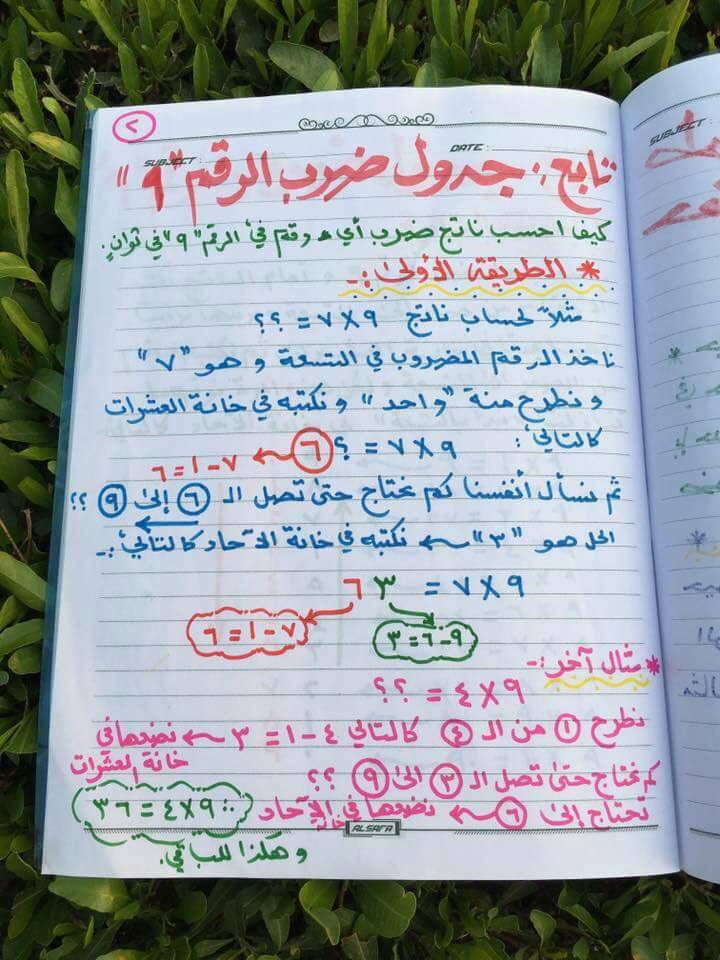 ٢
SUBJECT : DATE :
تابع : جدول ضرب الرقم "٩"
كيف احسب ناتج ضرب أي رقم في الرقم "٩" في ثوانٍ .
* الطريقة الأولى :-
مثلاً لحساب ناتج ٩ × ٧ = ؟؟
ناخذ الرقم المضروب في التسعة و هو "٧"
و نطرح منة "واحد" و نكتبه في خانة العشرات
كالتالي :
٩ × ٧ = ؟ ٦ ← ٧ - ١ = ٦
ثم نسأل أنفسنا كم نحتاج حتى تصل الـ ٦ إلى ٩ ؟؟
الحل هو "٣" ← نكتبه في خانة الآحاد كالتالي :-
٩ × ٧ = ٦٣
٩ - ٦ = ٣
٧ - ١ = ٦
* مثال آخر :-
٩ × ٤ = ؟؟
نطرح ١ من الـ ٤ كالتالي ٤ - ١ = ٣ ← نضعها في
خانة العشرات
كم نحتاج حتى تصل الـ ٣ إلى ٩ ؟؟
تحتاج إلى ٦ ← نضعها في خانة الآحاد
∴ ٩ × ٤ = ٣٦
و هكذا للباقي .
ALSAFA
SUBJECT :